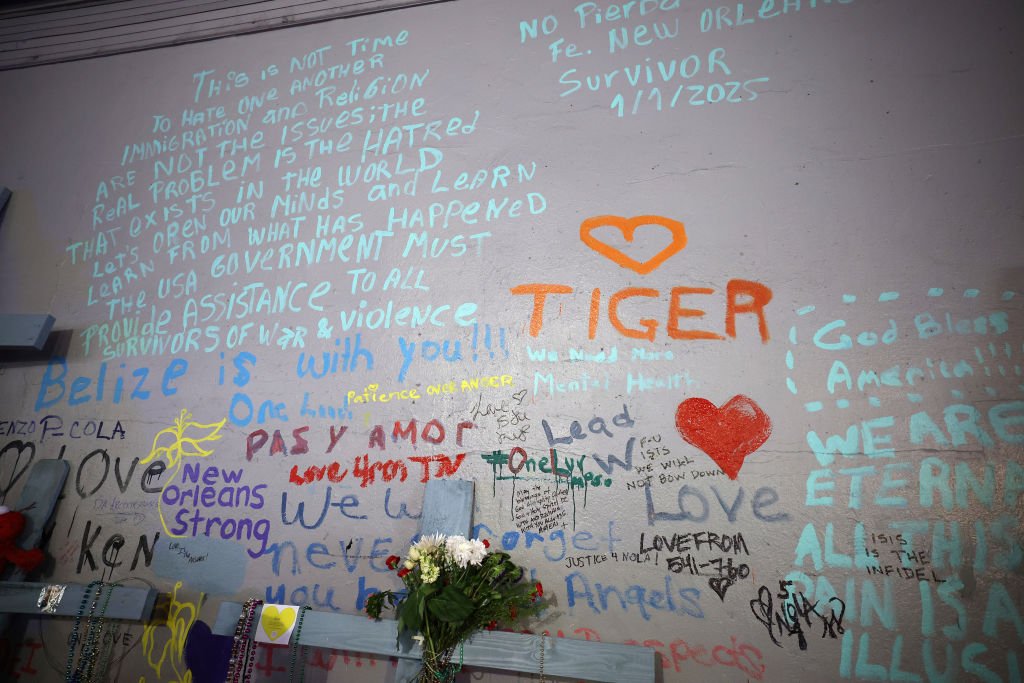 This is NOT Time
To HATE ONE ANOTHER
IMMIGRATION and RELIGION
ARE NOT THE ISSUES;THE
REAL PROBLEM IS THE HATREd
THAT EXISTS IN THE WORLD
LET'S OPEN OUR MINdS and LEARN
LEARN FROM WHAT HAS HAPPENED
THE USA GOVERNMENT MUST
PROVIdE ASSISTANCE TO ALL
SURVIVORS OF WAR & violence
NO PierDa
Fe. NEW ORLEANS
SURVIVOR
1/1/2025
TIGER
Belize is with you!!!
One
We Need More
Mental Health
God Bless
America!!!
Patience OVER ANGER
P-COLA
PAS Y AMOR
Love 4rom TN
Love
Lead
#OneLuv
F-U
ISIS
WE WILL
NOT BOW DOWN
WE ARE
ETERNAL
ALL THIS
PAIN IS A
ILLUSI
LOVE
New
Orleans
Strong
We
never forget
you Angels
Love
KEN
JUSTICE 4 NOLA!
LOVE FROM
541-760
ISIS
IS THE
INFIDEL
NOLA